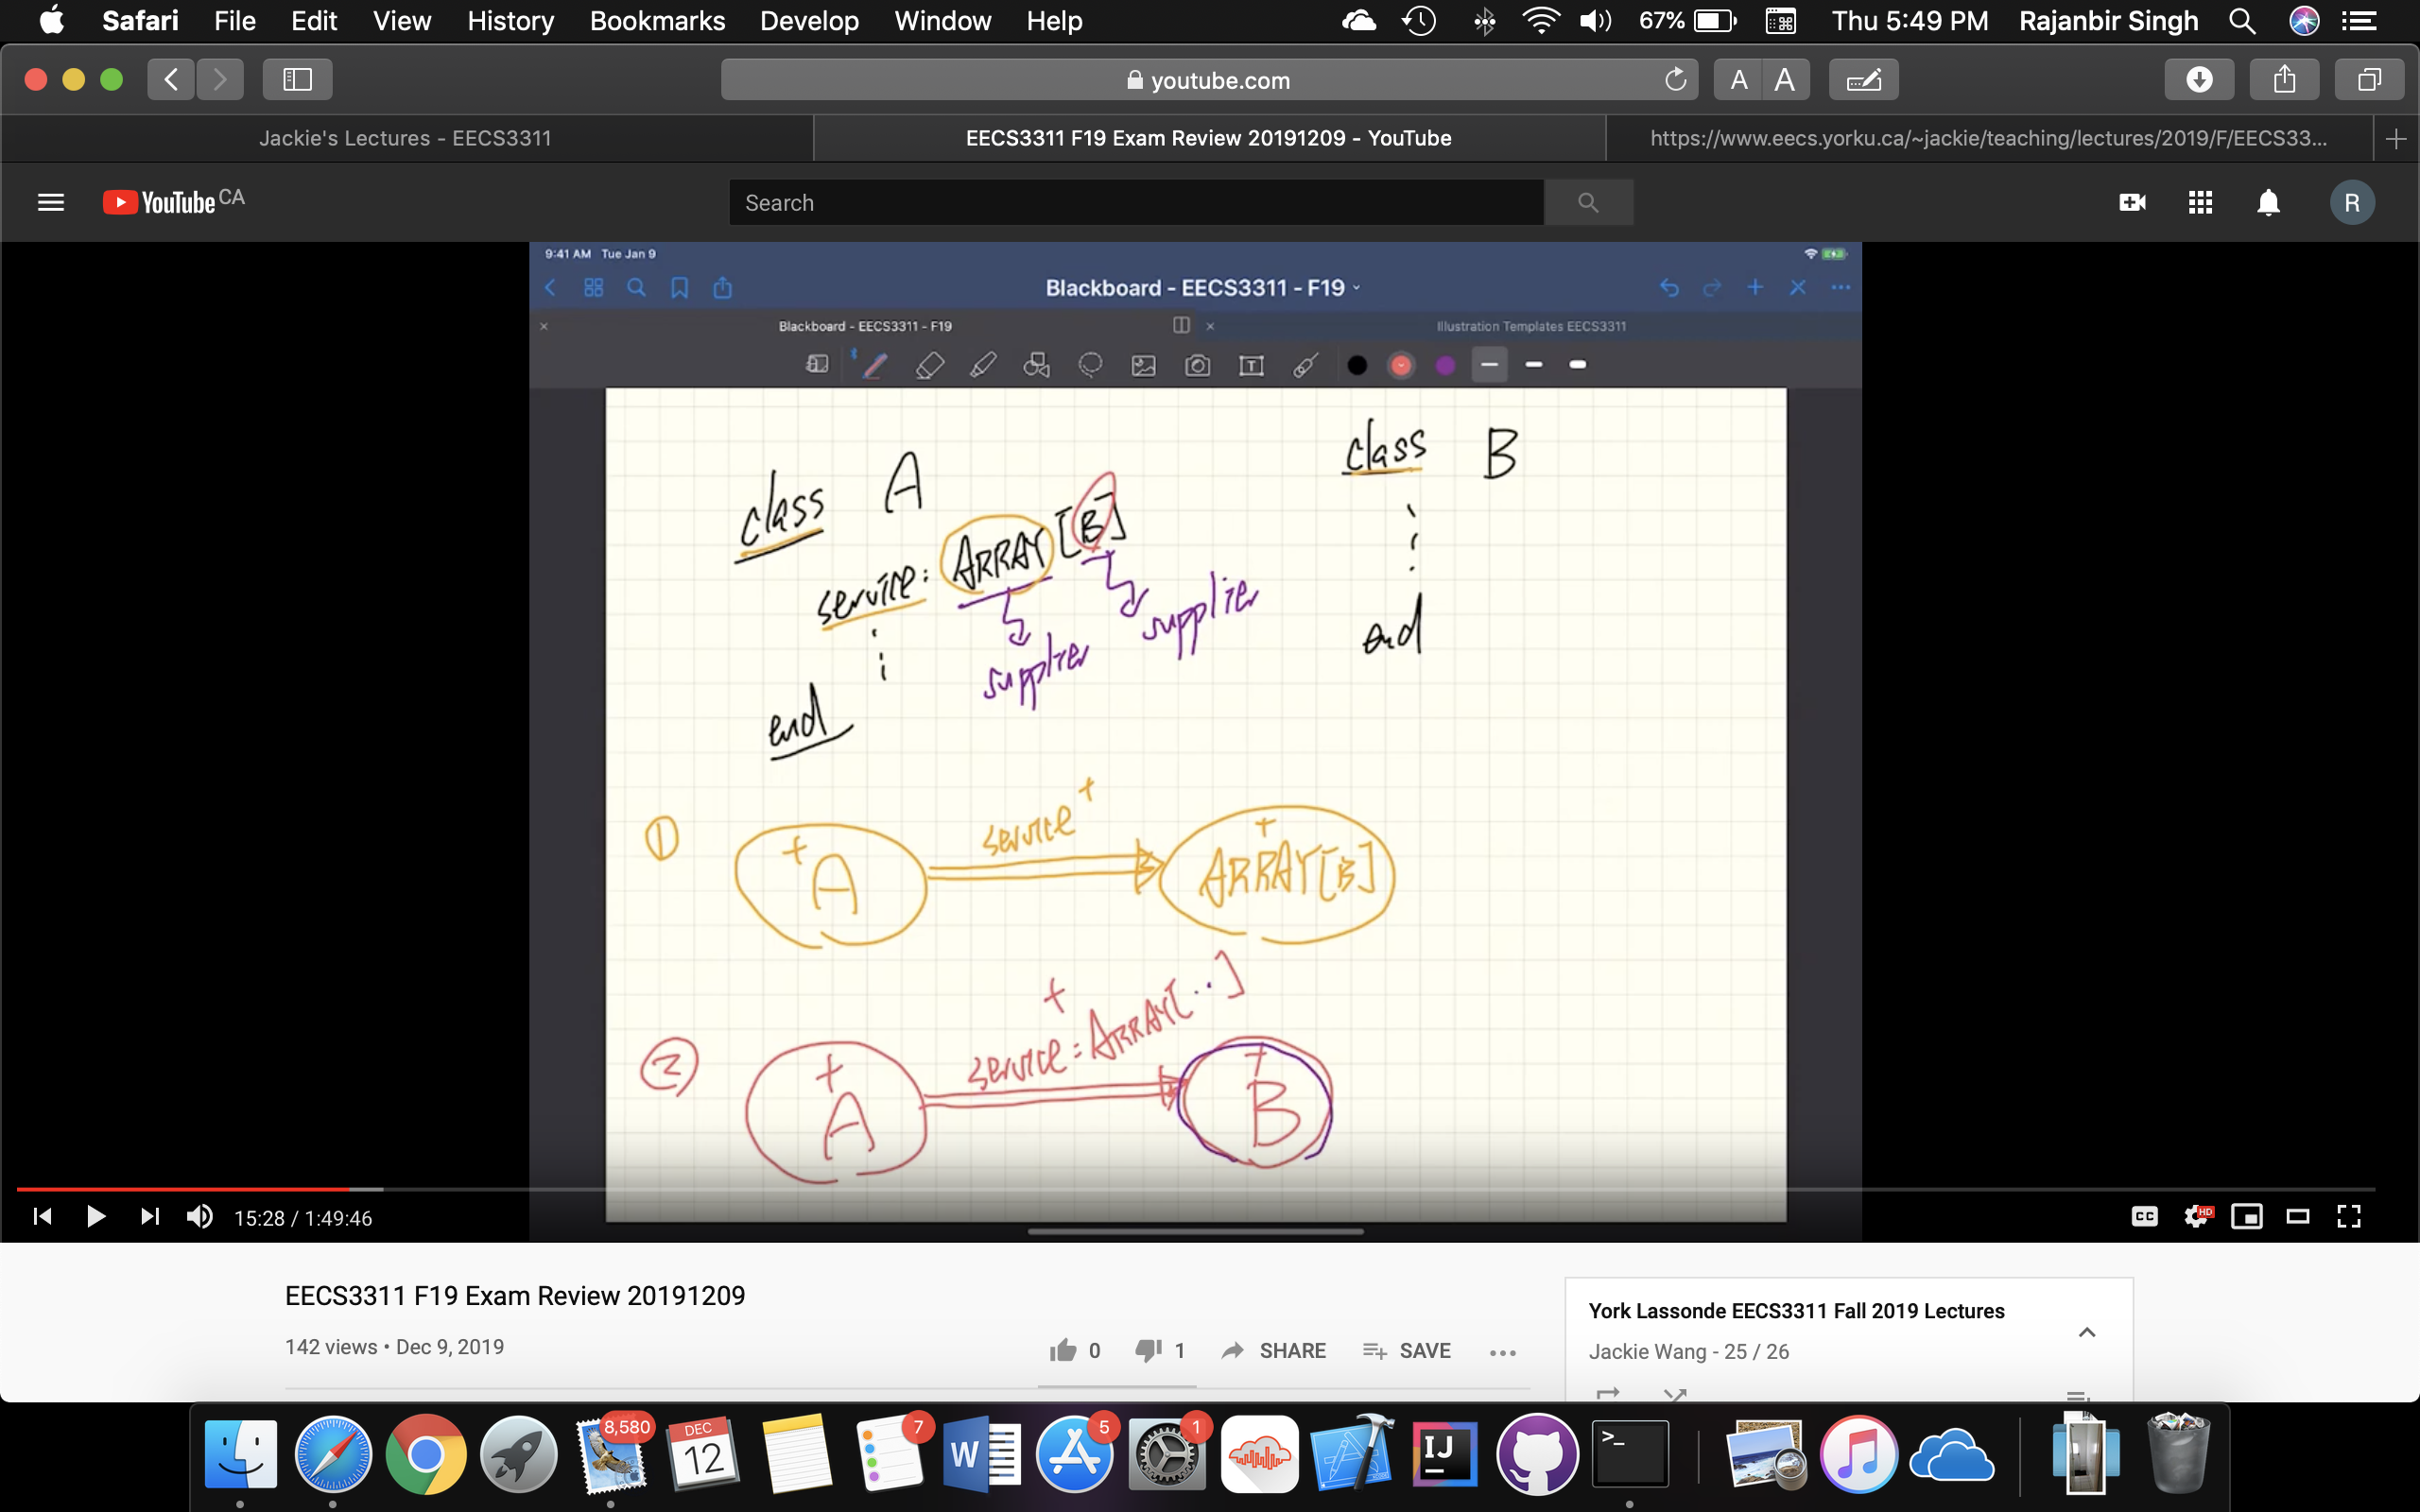 Safari File Edit View History Bookmarks Develop Window Help 67% Thu 5:49 PM Rajanbir Singh
youtube.com A A
Jackie's Lectures - EECS3311 EECS3311 F19 Exam Review 20191209 - YouTube https://www.eecs.yorku.ca/~jackie/teaching/lectures/2019/F/EECS33...
YouTube CA Search R
9:41 AM Tue Jan 9
Blackboard - EECS3311 - F19
Blackboard - EECS3311 - F19 Illustration Templates EECS3311
T
class A class B
service: ARRAY[B]
supplier supplier
end end
① +A service+ +ARRAY[B]
② +A +service: ARRAY[..] +B
15:28 / 1:49:46 CC HD
EECS3311 F19 Exam Review 20191209
142 views • Dec 9, 2019 0 1 SHARE SAVE
York Lassonde EECS3311 Fall 2019 Lectures
Jackie Wang - 25 / 26
8,580 DEC 12 7 W 5 1 IJ >_